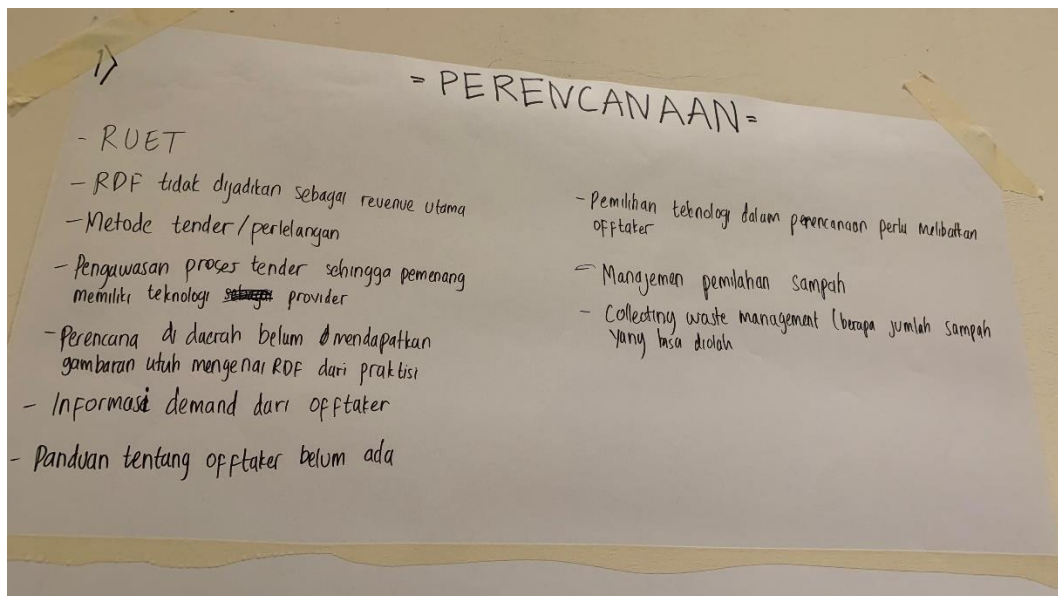 1)
= PERENCANAAN =
- RUET
- RDF tidak dijadikan sebagai revenue utama
- Metode tender/perlelangan
- Pengawasan proses tender sehingga pemenang
memiliki teknologi provider
- Perencana di daerah belum mendapatkan
gambaran utuh mengenai RDF dari praktisi
- Informasi demand dari offtaker
- Panduan tentang offtaker belum ada
- Pemilihan teknologi dalam perencanaan perlu melibatkan
offtaker
- Manajemen pemilahan sampah
- Collecting waste management (berapa jumlah sampah
yang bisa diolah